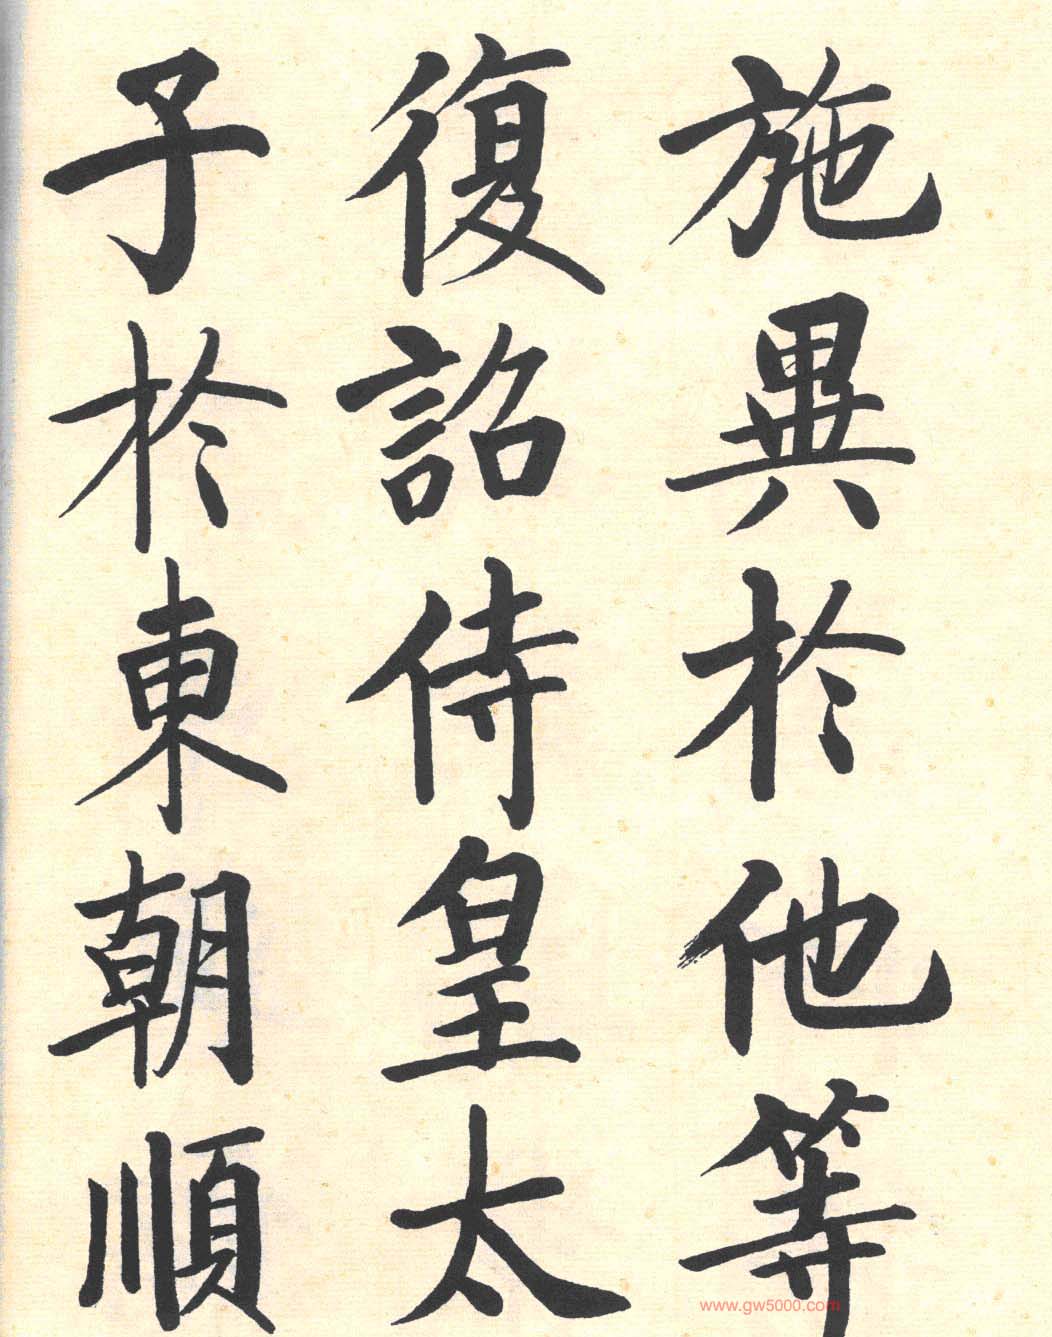 施異於他等
復詔侍皇太
子於東朝順
www.gw5000.com